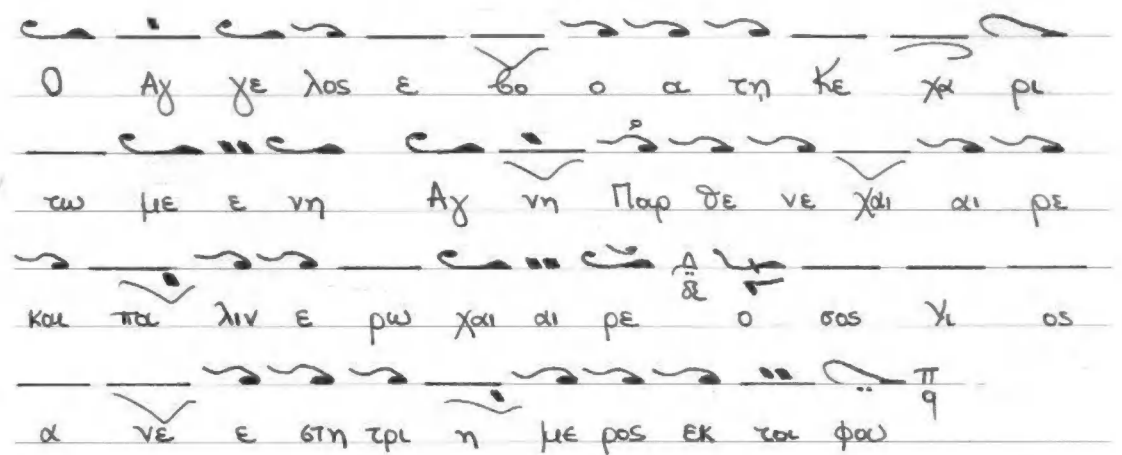 Ο Αγ γε λος ε βο ο α τη Κε χα ρι
τω με ε νη Αγ νη Παρ θε νε χαι αι ρε
και πα λιν ε ρω χαι αι ρε Δ δι ο σος Υι ος
α νε ε στη τρι η με ρος εκ τα φου π q